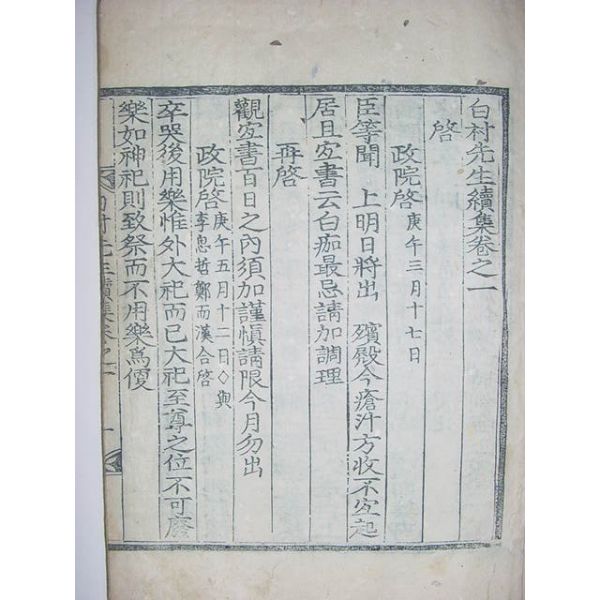 白村先生續集卷之一
啓
政院啓 庚午三月十七日
臣等聞 上明日將出 殯殿今瘡汁方收不宜起
居且宜書云白痂最忌請加調理
再啓
觀宜書百日之內須加謹愼請限今月勿出
政院啓 庚午五月十二日◇與
李思哲鄭而漢合啓
卒哭後用樂惟外大祀而已大祀至尊之位不可廢
樂如神祀則致祭而不用樂爲便